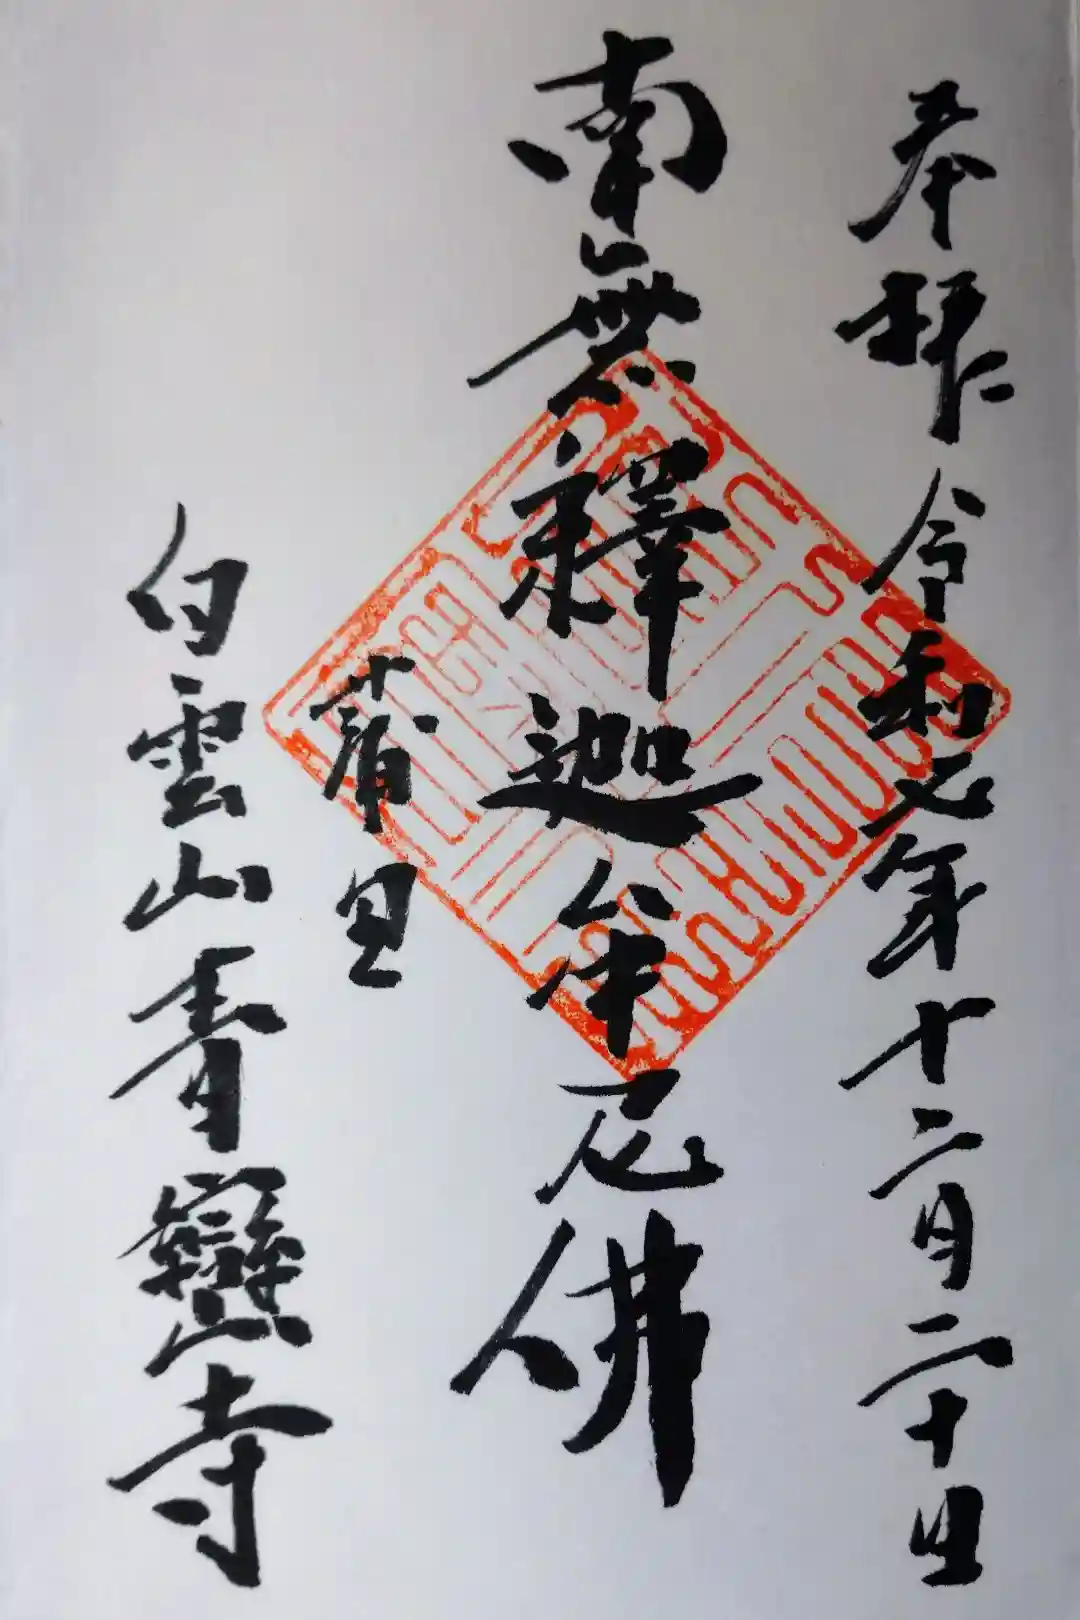 奉拝 令和元年十二月二十日
南無釋迦牟尼佛
蒲里
白雲山青巒寺